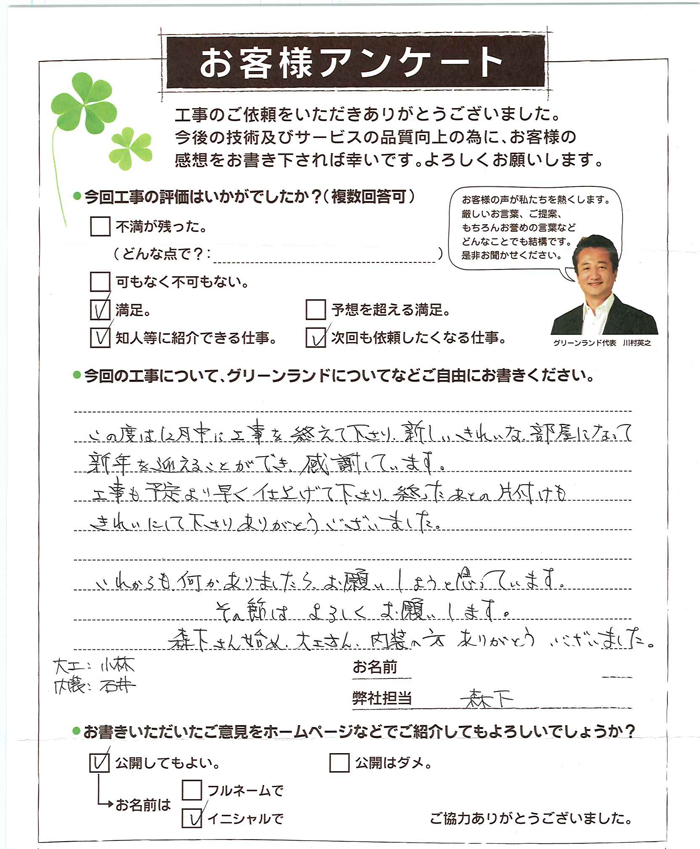 お客様アンケート
工事のご依頼をいただきありがとうございました。
今後の技術及びサービスの品質向上の為に、お客様の
感想をお書き下されば幸いです。よろしくお願いします。
今回工事の評価はいかがでしたか？（複数回答可）
不満が残った。
（どんな点で？： ）
可もなく不可もない。
満足。 予想を超える満足。
知人等に紹介できる仕事。 次回も依頼したくなる仕事。
お客様の声が私たちを熱くします。
厳しいお言葉、ご提案、
もちろんお誉めの言葉など
どんなことでも結構です。
是非お聞かせください。
グリーンランド代表 川村英之
今回の工事について、グリーンランドについてなどご自由にお書きください。
この度は12月中に工事を終えて下さり、新しいきれいな部屋になって
新年を迎えることができ、感謝しています。
工事も予定より早く仕上げて下さり、終ったあとの片付けも
きれいにして下さりありがとうございました。
これからも何かありましたら、お願いしようと思っています。
その節はよろしくお願いします。
森下さん始め、大工さん、内装の方ありがとうございました。
大工：小林
内装：石井
お名前
弊社担当 森下
お書きいただいたご意見をホームページなどでご紹介してもよろしいでしょうか？
公開してもよい。 公開はダメ。
お名前は
フルネームで
イニシャルで
ご協力ありがとうございました。